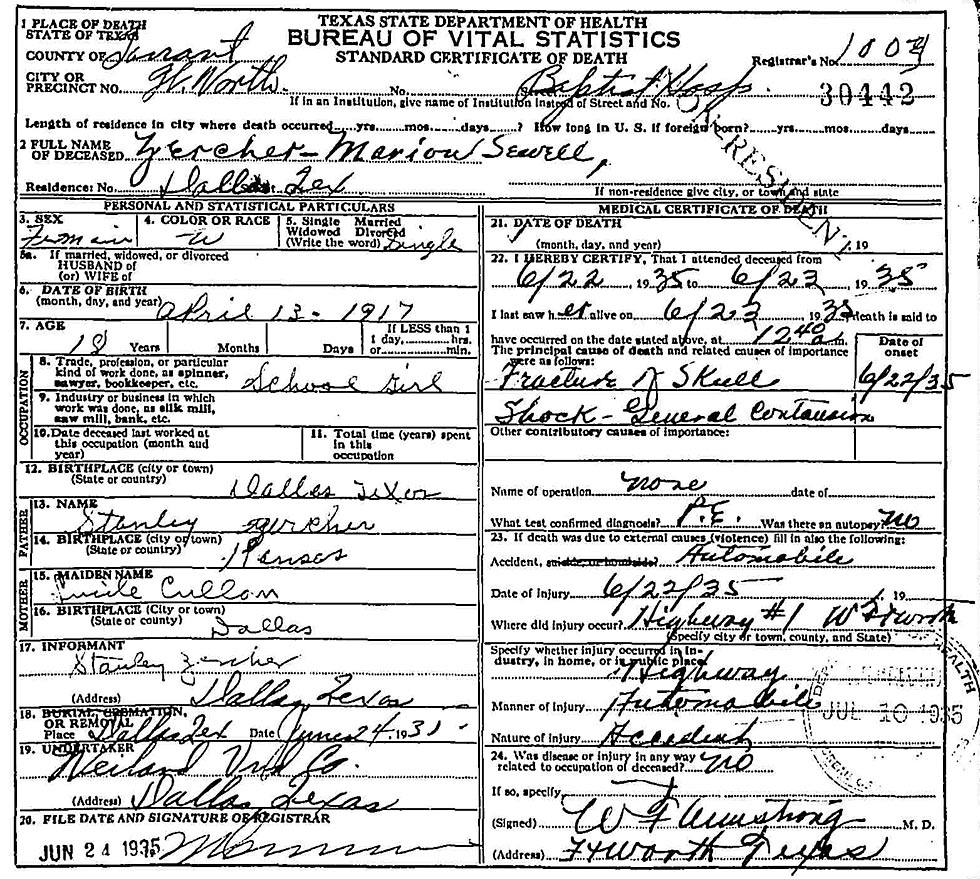 TEXAS STATE DEPARTMENT OF HEALTH
BUREAU OF VITAL STATISTICS
STANDARD CERTIFICATE OF DEATH
1 PLACE OF DEATH
STATE OF TEXAS
COUNTY OF Tarrant
Registrar's No. 1004
CITY OR PRECINCT NO. Ft. Worth No. Baptist Hosp. 30442
If in an Institution, give name of Institution instead of Street and No.
OK RESIDENT
Length of residence in city where death occurred yrs. mos. days? How long in U. S. if foreign born? yrs. mos. days.
2 FULL NAME OF DECEASED Zercher - Marion Sewell,
Residence: No. Dallas St. Tex
If non-residence give city, or town and state
PERSONAL AND STATISTICAL PARTICULARS
3. SEX
4. COLOR OR RACE W
5. Single Married Widowed Divorced (Write the word) Single
5a. If married, widowed, or divorced
HUSBAND of
(or) WIFE of
6. DATE OF BIRTH
(month, day, and year) April 13 - 1917
7. AGE 18 Years Months Days If LESS than 1 1 day, hrs. or min.
OCCUPATION
8. Trade, profession, or particular kind of work done, as spinner, sawyer, bookkeeper, etc. School Girl
9. Industry or business in which work was done, as silk mill, saw mill, bank, etc.
10. Date deceased last worked at this occupation (month and year)
11. Total time (years) spent in this occupation
12. BIRTHPLACE (city or town)
(State or country) Dallas Texas
FATHER
13. NAME
Stanley Zercher
14. BIRTHPLACE (city or town)
(State or country) Kansas
MOTHER
15. MAIDEN NAME
Lucile Cullon
16. BIRTHPLACE (City or town)
(State or county) Dallas
17. INFORMANT
Stanley Zercher
(Address) Dallas, Texas
18. BURIAL, CREMATION, OR REMOVAL
Place Dallas Tex Date June 24, 1935
19. UNDERTAKER
Weiland Und Co.
(Address) Dallas, Texas
20. FILE DATE AND SIGNATURE OF REGISTRAR
JUN 24 1935
MEDICAL CERTIFICATE OF DEATH
21. DATE OF DEATH
(month, day, and year) , 19
22. I HEREBY CERTIFY, That I attended deceased from
6/22, 1935 to 6/23, 1935
I last saw her alive on 6/23 1935 death is said to
have occurred on the date stated above, at 12 40 m.
The principal cause of death and related causes of importance were as follows:
Date of onset
Fracture of Skull 6/22/35
Shock - General Contusion
Other contributory causes of importance:
Name of operation none date of
What test confirmed diagnosis? P.E. Was there an autopsy? no
23. If death was due to external causes (violence) fill in also the following:
Accident, suicide, or homicide? Automobile
Date of injury 6/22/35, 19
Where did injury occur? Highway #1 W Ft Worth
(Specify city or town, county, and State)
Specify whether injury occurred in Industry, in home, or in public place.
Highway
Manner of injury Automobile
Nature of injury Accident
24. Was disease or injury in any way related to occupation of deceased? no
If so, specify
(Signed) W F Armstrong M. D.
(Address) Ft Worth Texas
JUL 10 1935